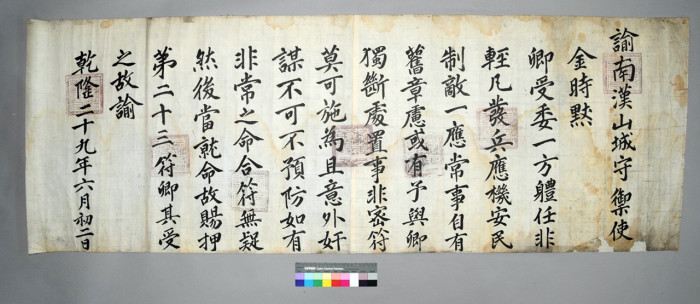 諭南漢山城守禦使
金時黙
卿受委一方軆任非
輕凡發兵應機安民
制敵一應常事自有
舊章慮或有予與卿
獨斷處置事非密符
莫可施爲且意外奸
謀不可不預防如有
非常之命合符無疑
然後當就命故賜押
第二十三符卿其受
之故諭
乾隆二十九年六月初二日